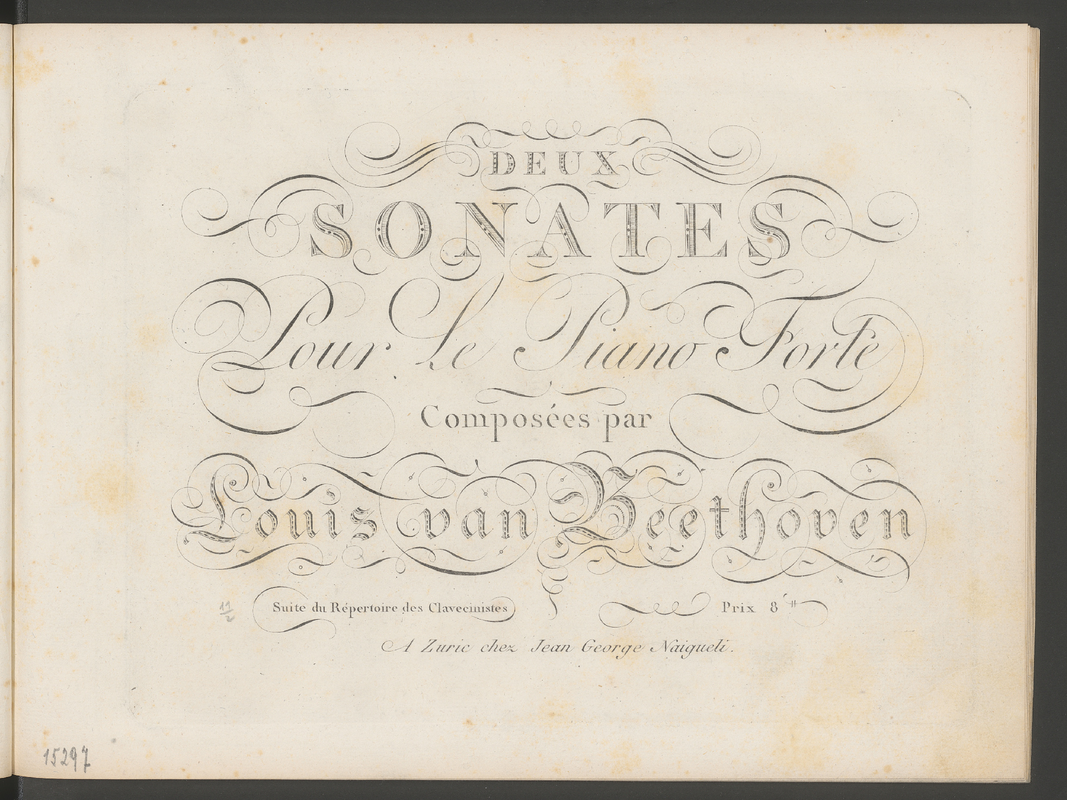 DEUX
SONATES
Pour le Piano Forte
Composées par
Louis van Beethoven
Suite du Répertoire des Clavecinistes
Prix 8
A Zuric chez Jean George Naigueli.
15297